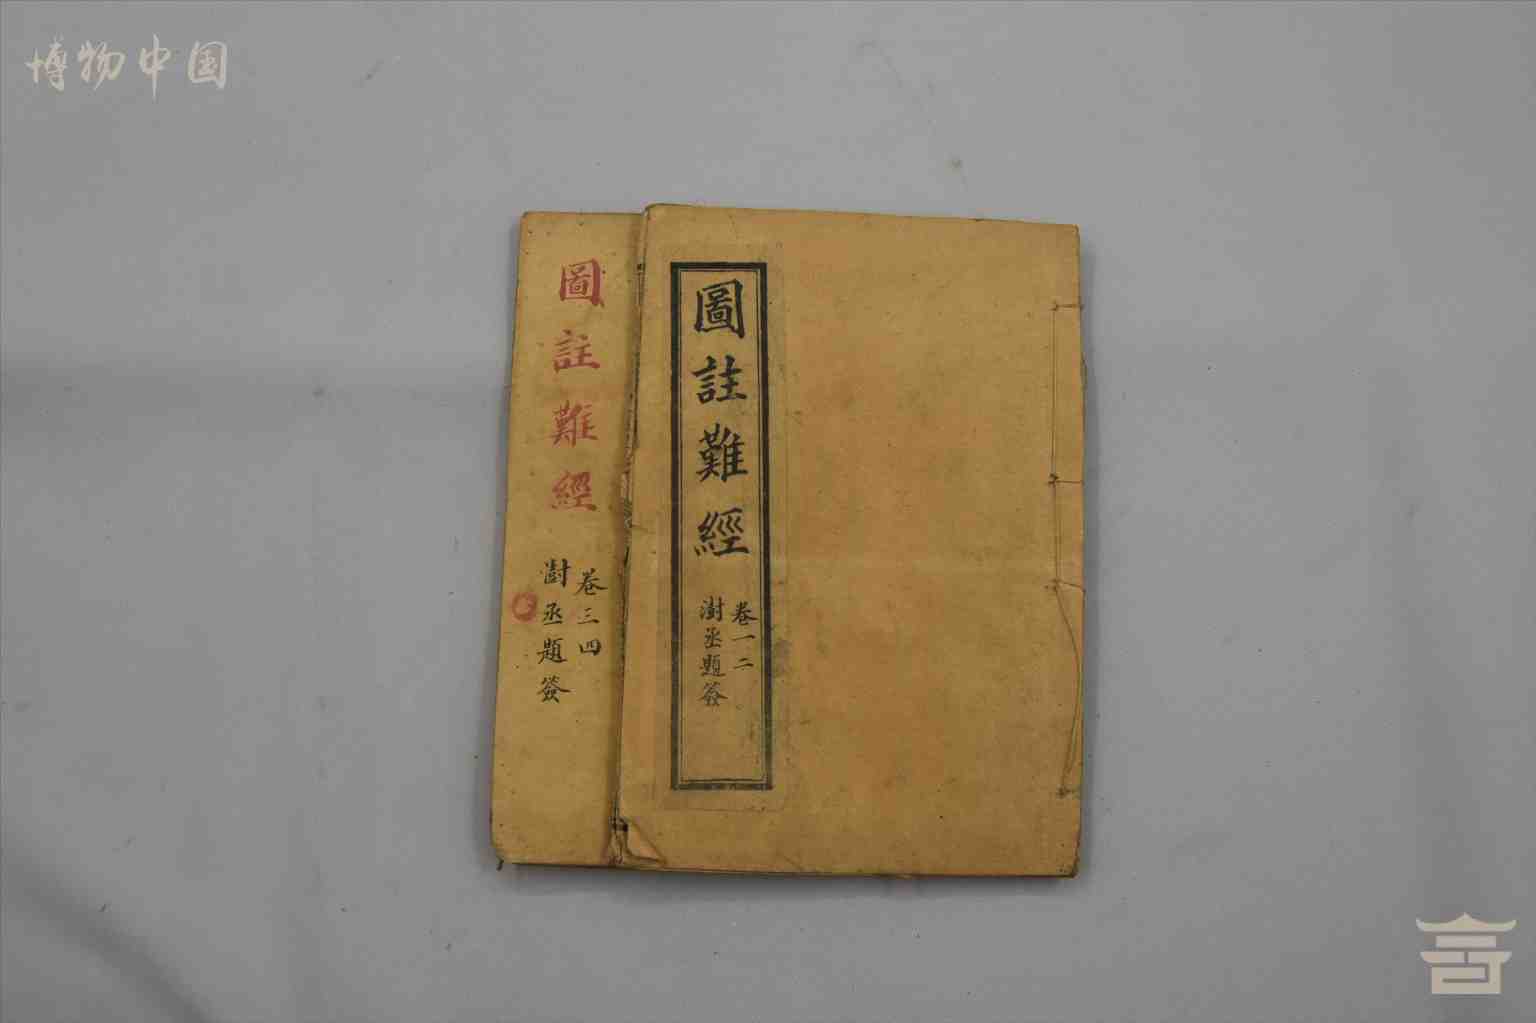 博物中国
圖註難經
卷一二
澍丞題簽
圖註難經
卷三四
澍丞題簽